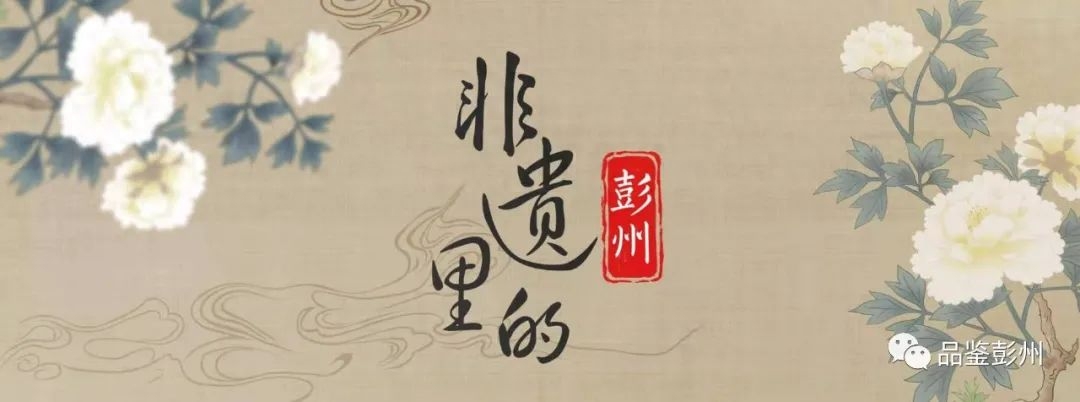 非遗里的
彭州
品鉴彭州